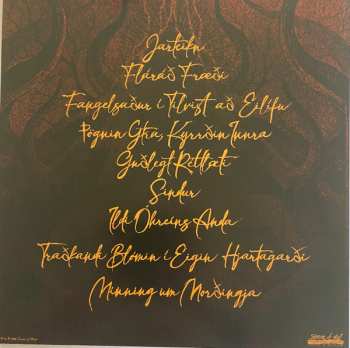 Jarteikn
Fláráð Fræði
Fangelsaður í Tilvist að Eilífu
Þögnin Ytra, Kyrrðin Innra
Guðlegt Réttlæti
Sindur
Ildi Óhreins Anda
Traðkandi Blómin í Eigin Hjartagarði
Minning um Morðingja